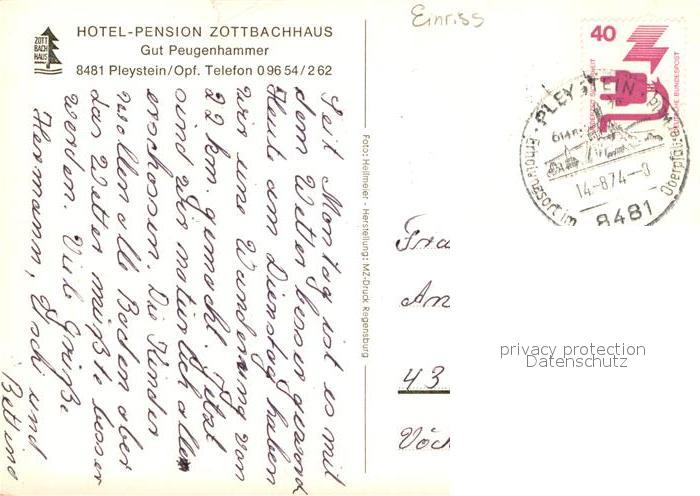 Einriss
ZOTT
BACH
HAUS
HOTEL-PENSION ZOTTBACHHAUS
Gut Peugenhammer
8481 Pleystein/Opf. Telefon 0 96 54 / 2 62
Seit Montag ist es mit
dem Wetter besser geword
Heute am Dienstag haben
wir eine Wanderung von
22 km. gemacht. Jetzt
sind wir natürlich alle
erschossen. Die Kinder
wollen alle Baden aber
das Wetter müßte besser
werden. Viele Grüße
Hermann, Uschi und
Betund
Foto: Heilmeier - Herstellung: MZ-Druck Regensburg
40
DEUTSCHE BUNDESPOST
PLEYSTEIN
614
14-8.74-
8481
Erholungsort im
Oberpfälzer
Fra
An
43
Vöc
privacy protection
Datenschutz